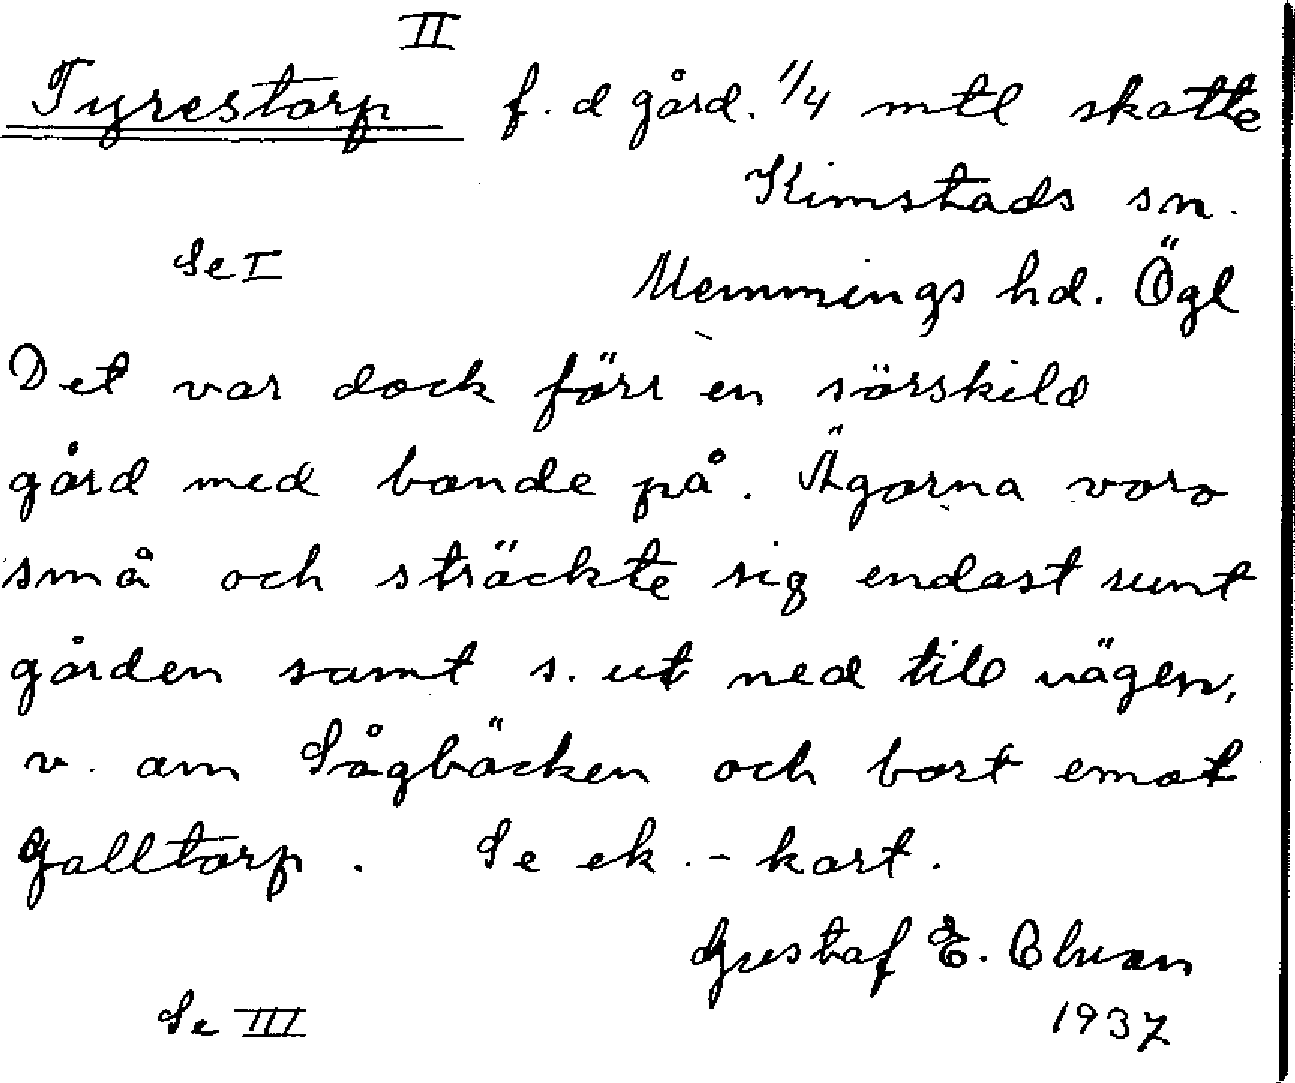 II
Tyrestorp f. d gård. 1/4 mtl skatte
Kimstads sn.
Se I
Memmings hd. Ögl
Det var dock förr en särskild
gård med bonde på. Ägorna voro
små och sträckte sig endast runt
gården samt s. ut ned till vägen,
v. om Sågbäcken och bort emot
Galltorp. Se ek.-kart.
Gustaf E.
Se III
1937